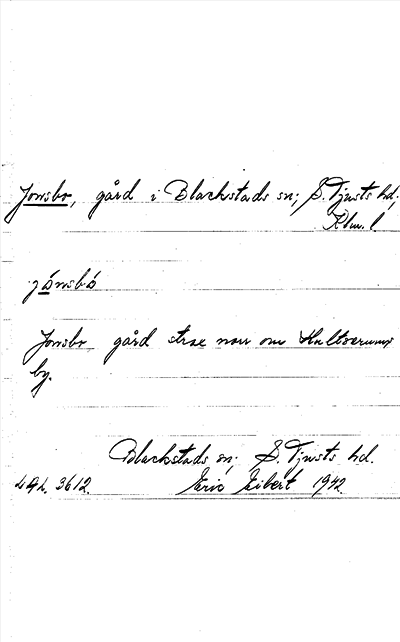 Jonsbo, gård i Blackstads sn; S. Tjusts hd.
Klm. l
jónsbó
Jonsbo gård strax norr om Hultserums
by.
Blackstads sn; S. Tjusts hd.
LAL. 3612. Eric Eibert 1942